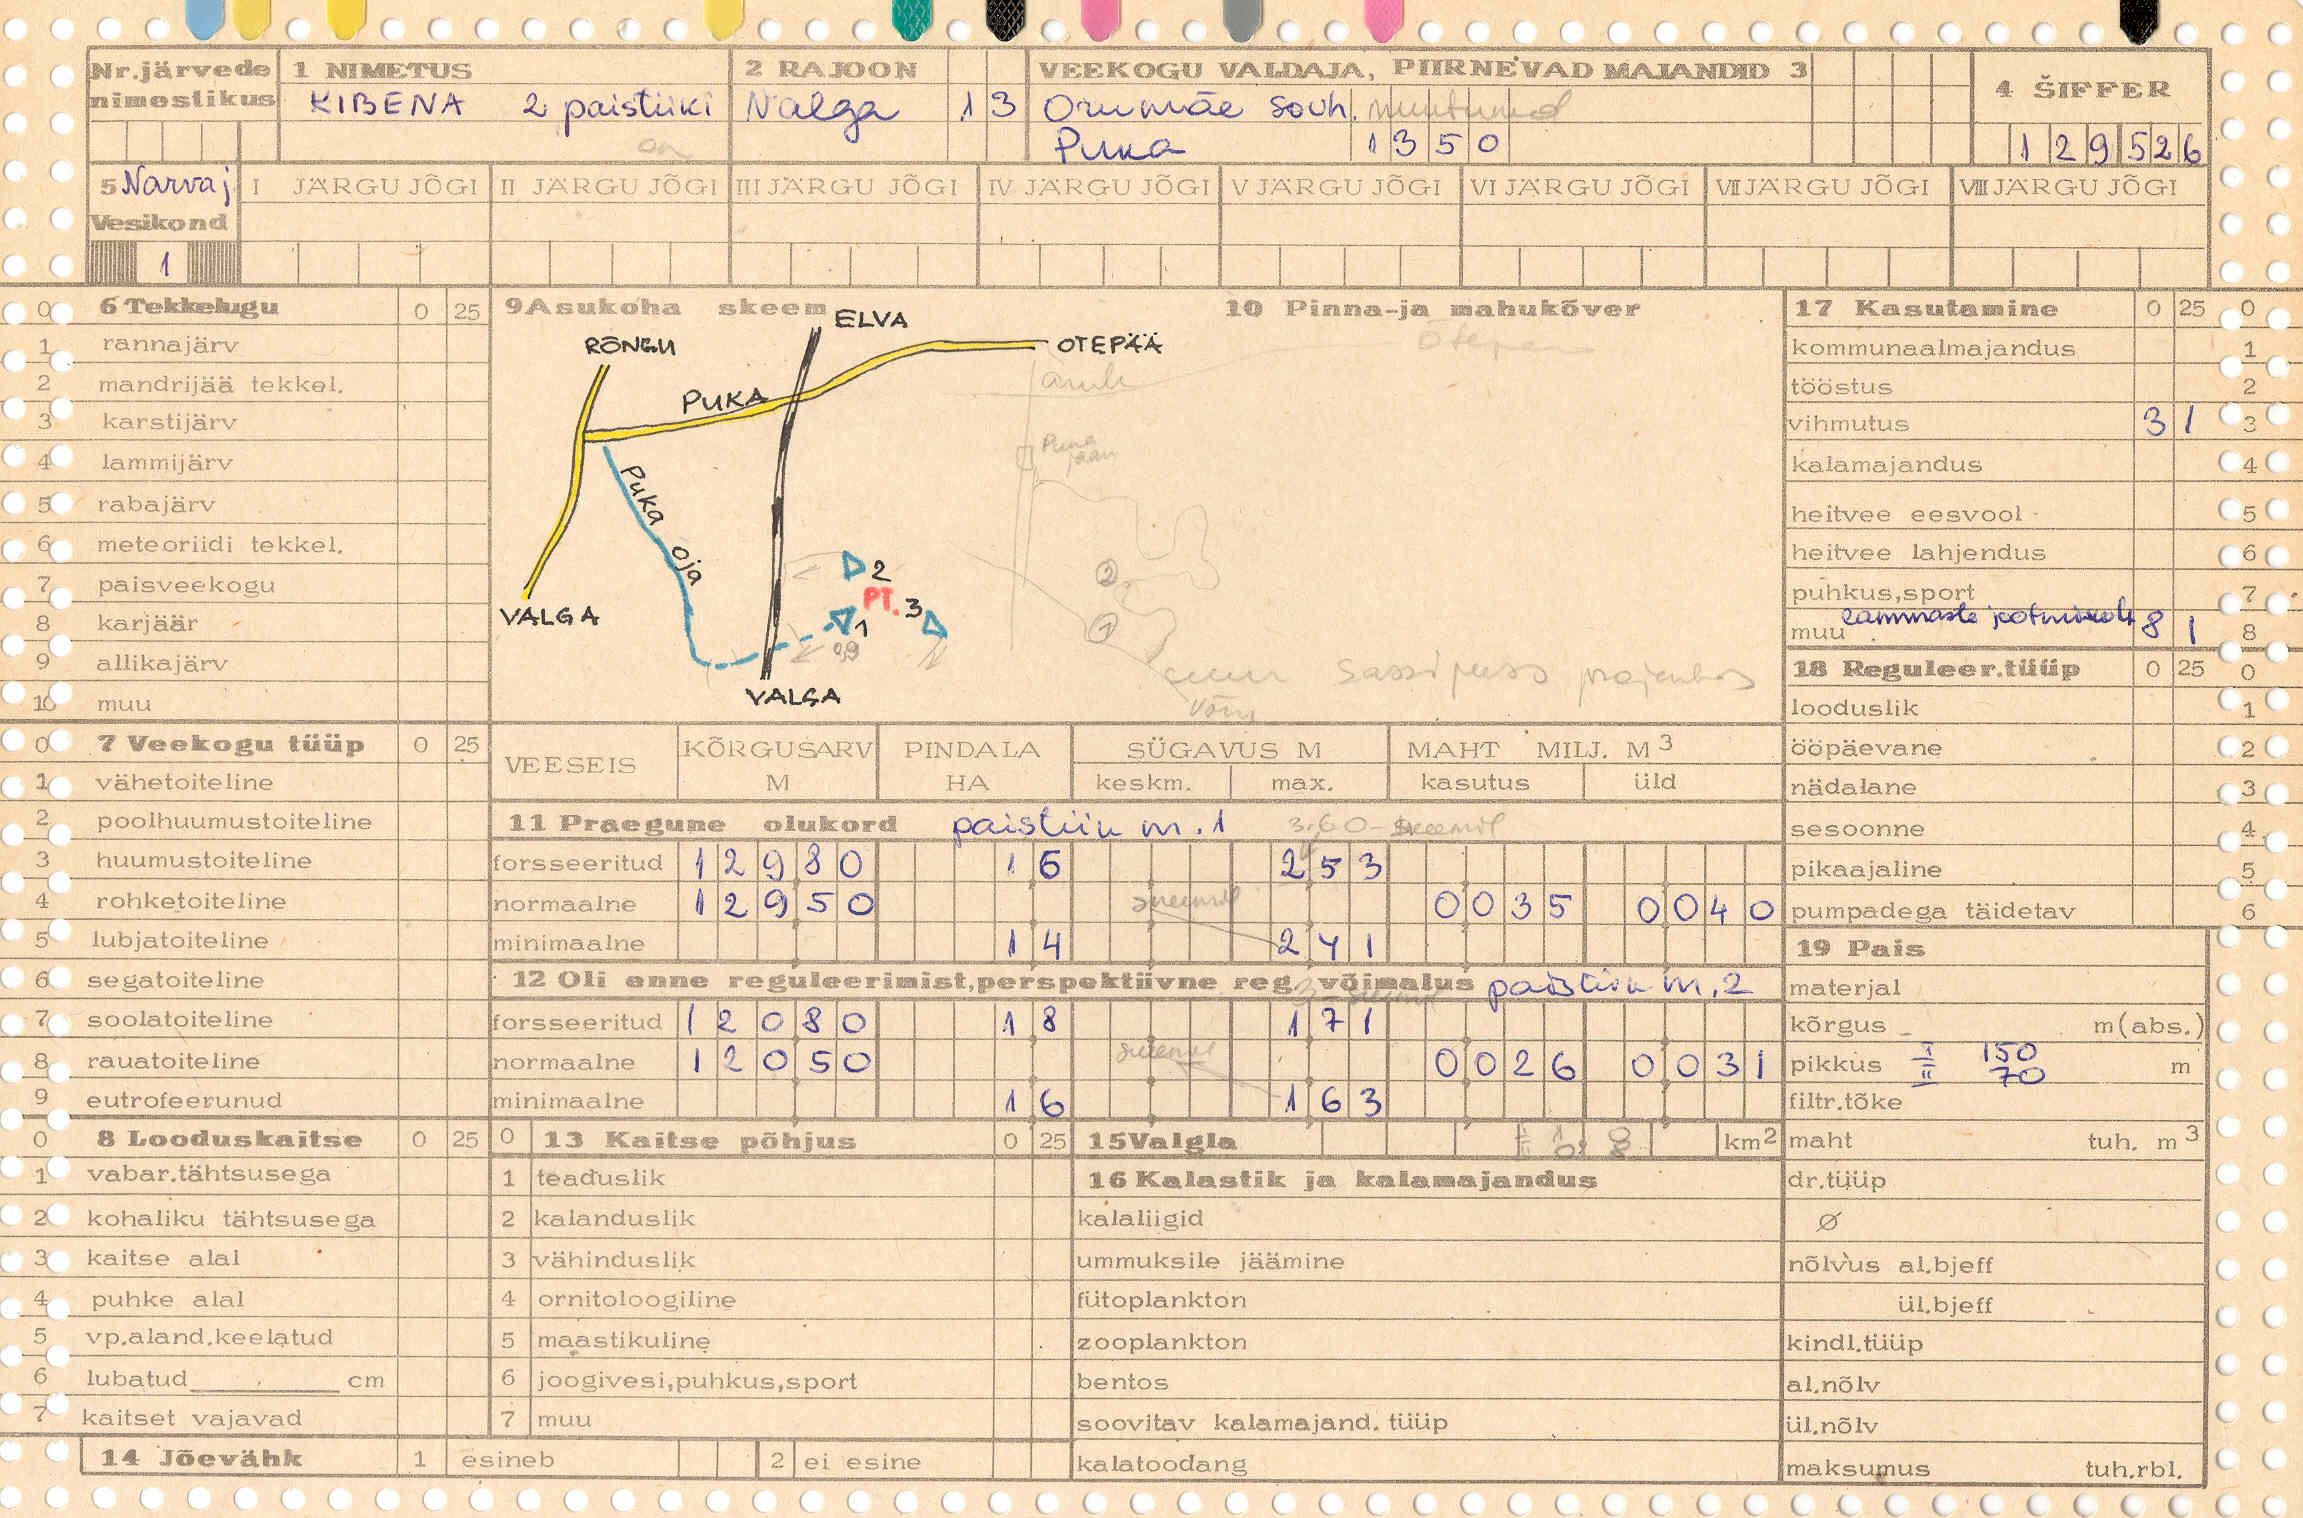 Nr.järvede nimestikus
1 NIMETUS
KIBENA 2 paistiiki
2 RAJOON
Valga 13
VEEKOGU VALDAJA, PIIRNEVAD MAJANDID 3
Orumäe sovh. muutunud
Puka 1350
4 ŠIFFER
129526
5 Narva j
Vesikond
1
I JÄRGU JÕGI
II JÄRGU JÕGI
III JÄRGU JÕGI
IV JÄRGU JÕGI
V JÄRGU JÕGI
VI JÄRGU JÕGI
VII JÄRGU JÕGI
VIII JÄRGU JÕGI
0 6 Tekkelugu 0 25
1 rannajärv
2 mandrijää tekkel.
3 karstijärv
4 lammijärv
5 rabajärv
6 meteoriidi tekkel.
7 paisveekogu
8 karjäär
9 allikajärv
10 muu
0 7 Veekogu tüüp 0 25
1 vähetoiteline
2 poolhuumustoiteline
3 huumustoiteline
4 rohketoiteline
5 lubjatoiteline
6 segatoiteline
7 soolatoiteline
8 rauatoiteline
9 eutrofeerunud
0 8 Looduskaitse 0 25
1 vabar.tähtsusega
2 kohaliku tähtsusega
3 kaitse alal
4 puhke alal
5 vp.aland.keelatud
6 lubatud cm
7 kaitset vajavad
14 Jõevähk 1 esineb 2 ei esine
9 Asukoha skeem
ELVA
RÕNGU
OTEPÄÄ
PUKA
Puka oja
VALGA
2
PT. 3
1
VALGA
10 Pinna-ja mahukõver
Otepää
Puka jaam
2
1
suur Sassi
Võru
VEESEIS
KÕRGUSARV M
PINDALA HA
SÜGAVUS M
keskm. max.
MAHT MILJ. M3
kasutus üld
11 Praegune olukord paistiik nr. 1 3.60 - skeemil
forsseeritud 12980 16 253
normaalne 12950 skeemil 0035 0040
minimaalne 14 241
12 Oli enne reguleerimist,perspektiivne reg. võimalus paistiik nr. 2
forsseeritud 12080 18 171
normaalne 12050 skeemil 0026 0031
minimaalne 16 163
0 13 Kaitse põhjus 0 25
1 teaduslik
2 kalanduslik
3 vähinduslik
4 ornitoloogiline
5 maastikuline
6 joogivesi,puhkus,sport
7 muu
15 Valgla km2
16 Kalastik ja kalamajandus
kalaliigid
ummuksile jäämine
fütoplankton
zooplankton
bentos
soovitav kalamajand. tüüp
kalatoodang
17 Kasutamine 0 25 0
kommunaalmajandus 1
tööstus 2
vihmutus 31 3
kalamajandus 4
heitvee eesvool 5
heitvee lahjendus 6
puhkus,sport 7
muu lammaste jootmiseks 81 8
18 Reguleer.tüüp 0 25 0
looduslik 1
ööpäevane 2
nädalane 3
sesoonne 4
pikaajaline 5
pumpadega täidetav 6
19 Pais
materjal
kõrgus m(abs.)
pikkus I 150 m
II 70
filtr.tõke
maht tuh. m3
dr.tüüp
Ø
nõlvus al.bjeff
ül.bjeff
kindl.tüüp
al.nõlv
ül.nõlv
maksumus tuh.rbl.